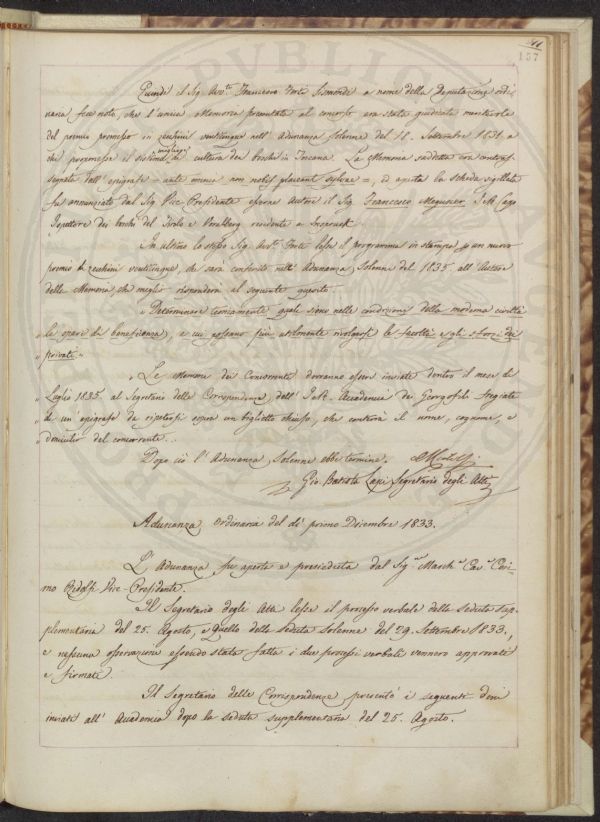 157
Quindi il Sig. Avv.to Francesco Forti Sismondi a nome della Deputazione ordi-
naria fece noto, che l'unica Memoria presentata al concorso era stata giudicata meritevole
del premio promesso in zecchini venticinque nell'Adunanza Solenne del 18. Settembre 1831. a
chi proponesse il sistema migliore di cultura dei boschi in Toscana. La Memoria suddetta era contras-
segnata dall'epigrafe = ante omnia = ed aperta la scheda sigillata
fu annunziato dal Sig. Vice-Presidente esserne autore il Sig. Francesco Meguscer I. R. Capo
Ispettore dei boschi del Tirolo e Voralberg residente a Inspruck.
In ultimo lo stesso Sig. Avv.to Forti lesse il programma in stampa p. un nuovo
premio di zecchini venticinque, che sarà conferito nell'Adunanza Solenne del 1835. all'Autore
della Memoria, che meglio risponderà al seguente quesito.
„ Determinare sommamente quale siano nelle condizioni della moderna civiltà
„ le opere di beneficenza, a cui possano più utilmente rivolgersi le facoltà e gli sforzi dei
„ privati „
„ Le Memorie dei Concorrenti dovranno essere inviate dentro il mese di
„ Luglio 1835. al Segretario delle Corrispondenze dell'I. e R. Accademia dei Georgofili fregiate
„ di un'epigrafe da ripetersi sopra un biglietto chiuso, che conterrà il nome, cognome, e
„ domicilio del concorrente...
Dopo ciò l'Adunanza Solenne ebbe termine.
Gio. Batista Lapi Segretario degli Atti
Adunanza ordinaria del dì primo Dicembre 1833.
L'Adunanza fu aperta e presieduta dal Sig.re March.e Cav.e Cosi-
mo Ridolfi Vice-Presidente.
Il Segretario degli Atti lesse il processo verbale della Seduta sup-
plementaria del 25. Agosto, e quello della Seduta Solenne del 29. Settembre 1833.,
e nessuna osservazione essendo stata fatta i due processi verbali vennero approvati
e firmati.
Il Segretario delle Corrispondenze presentò i seguenti doni
inviati all'Accademia dopo la seduta supplementaria del 25. Agosto.